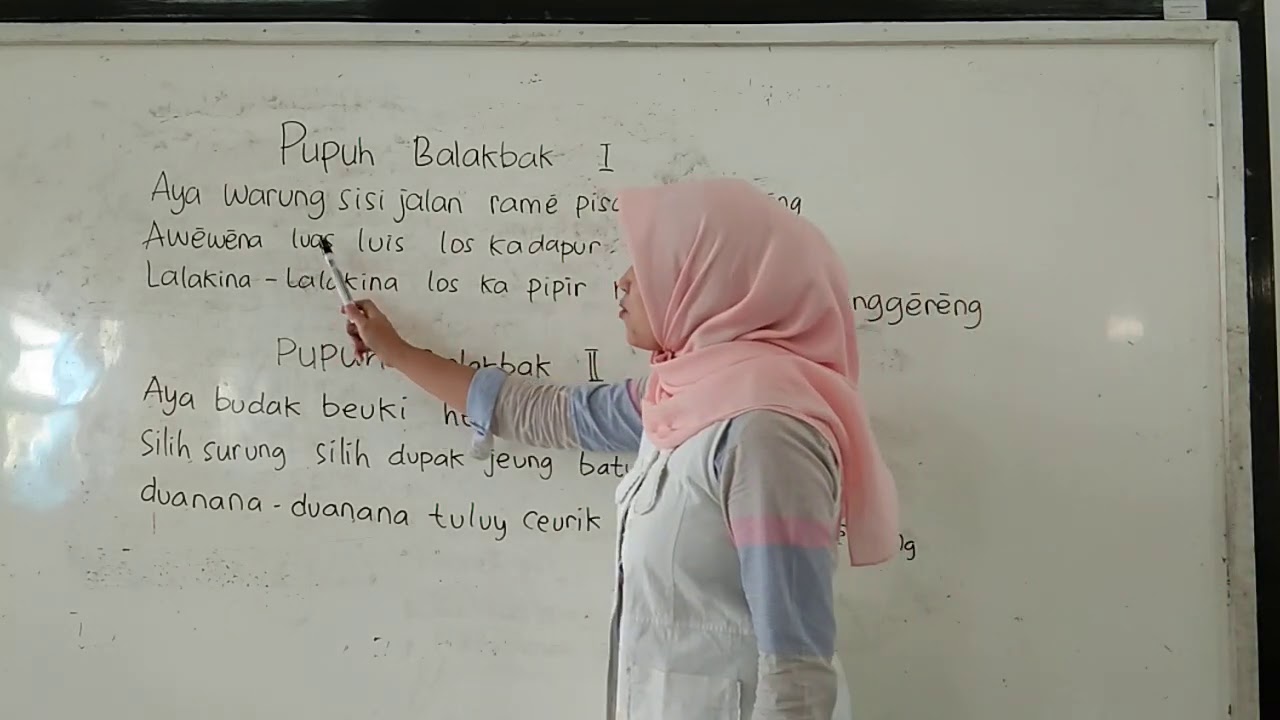 Pupuh Balakbak I
Aya warung sisi jalan ramē
Awēwēna luas luis los kadapur
Lalakina - Lalakina los ka pipir
Balakbak II
Aya budak beuki
Silih surung silih dupak jeung
duanana - duanana tuluy ceurik